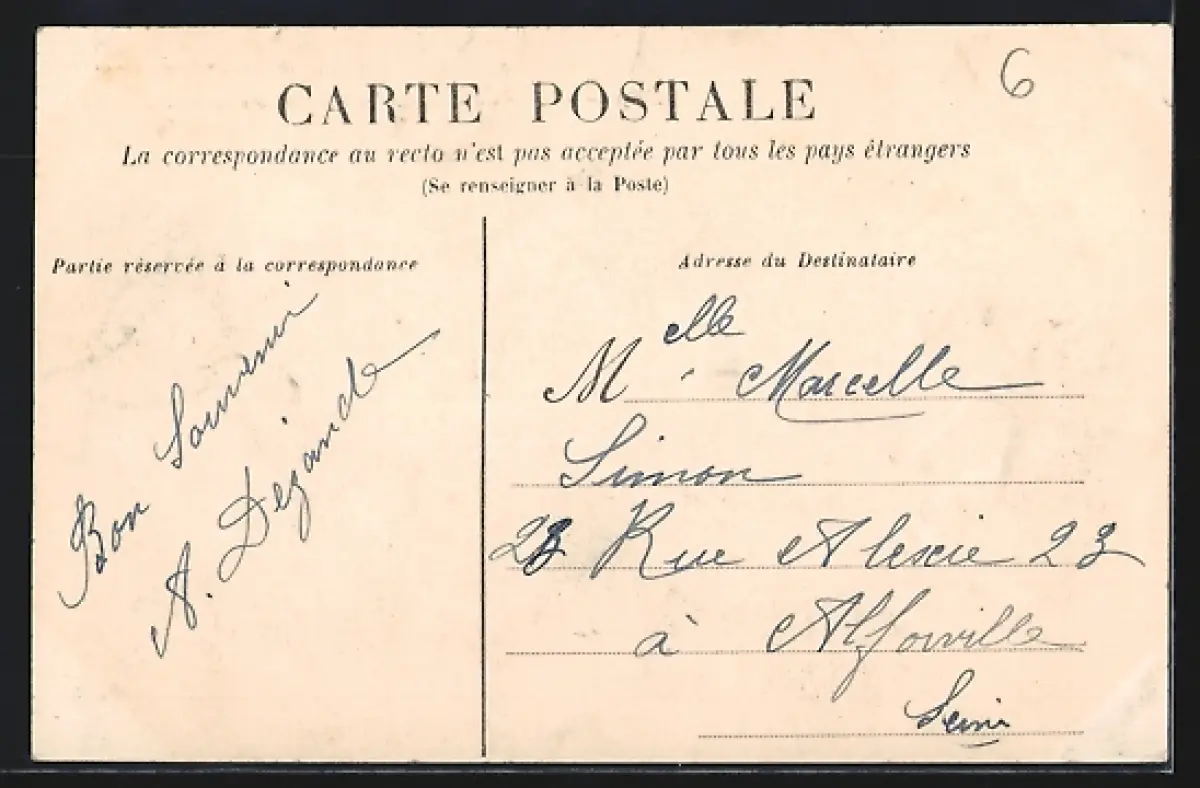 6
CARTE POSTALE
La correspondance au recto n'est pas acceptée par tous les pays étrangers
(Se renseigner à la Poste)
Partie réservée à la correspondance
Bon Souvenir
A. Dézande
Adresse du Destinataire
Melle Marcelle
Simon
23 Rue Alexie 23
à Alforville
Seine